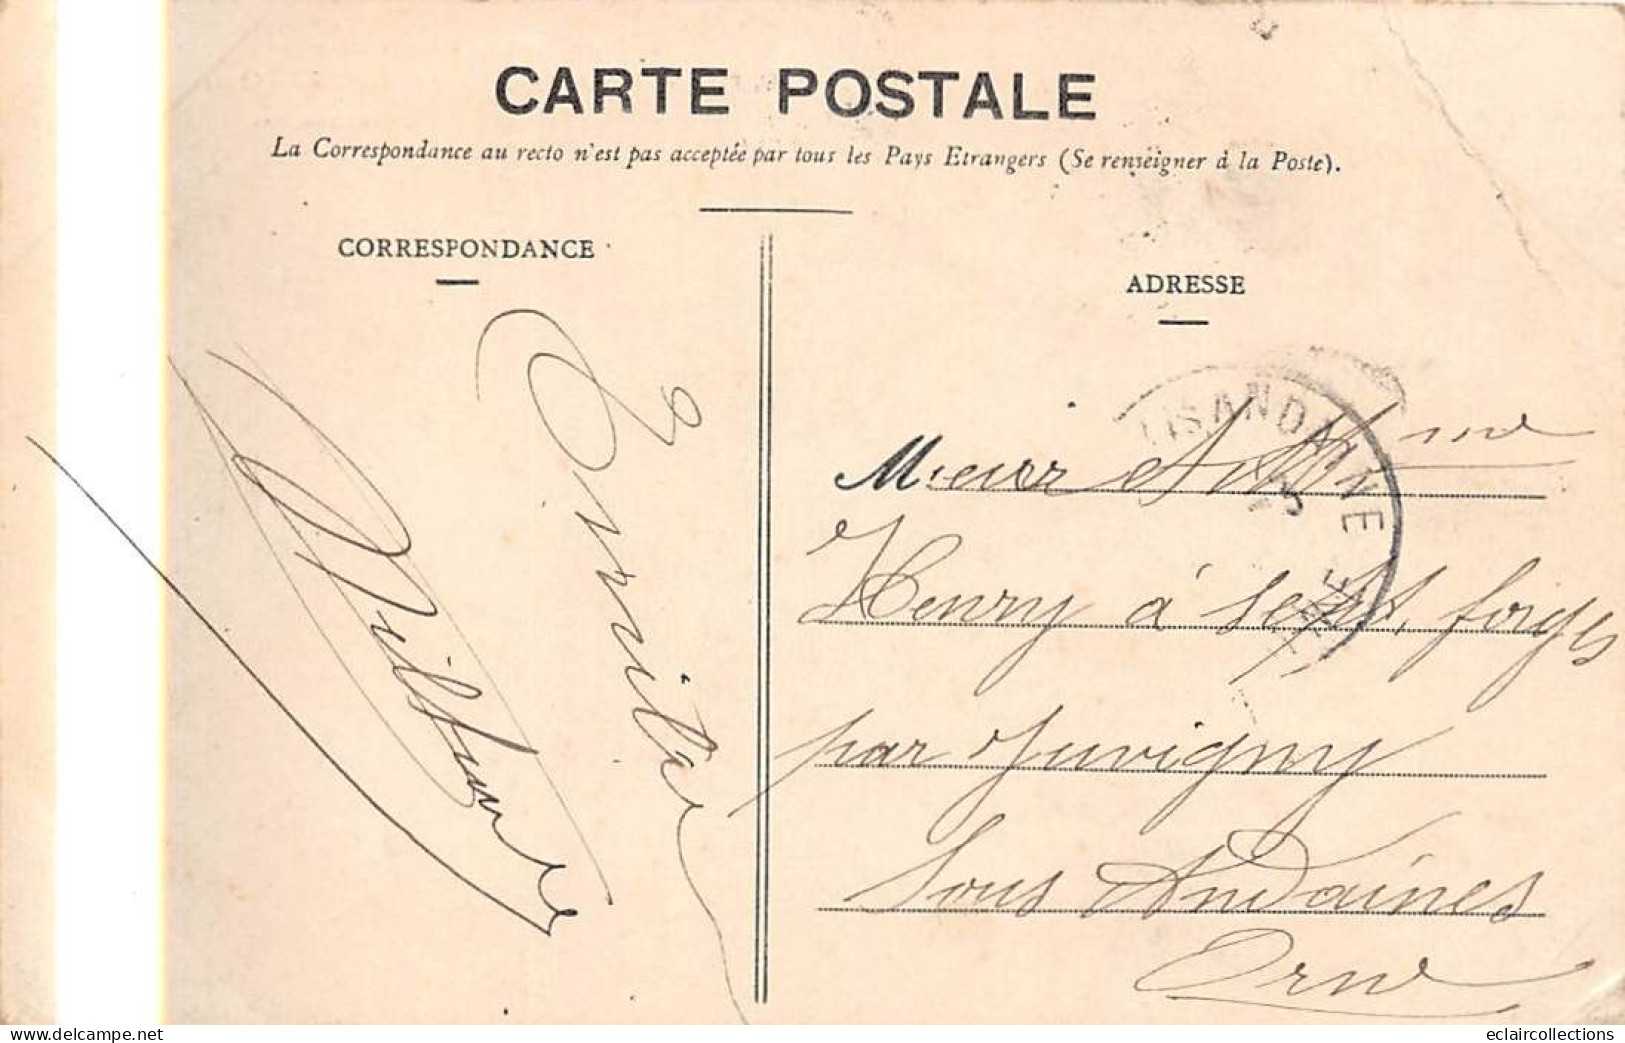 CARTE POSTALE
La Correspondance au recto n'est pas acceptée par tous les Pays Etrangers (Se renseigner à la Poste).
CORRESPONDANCE
ADRESSE
Emile
ISANDAINE
Mieur et Mme
Henry à Sept, forges
par Juvigny
Sous Andaines
Orne
eclaircollections